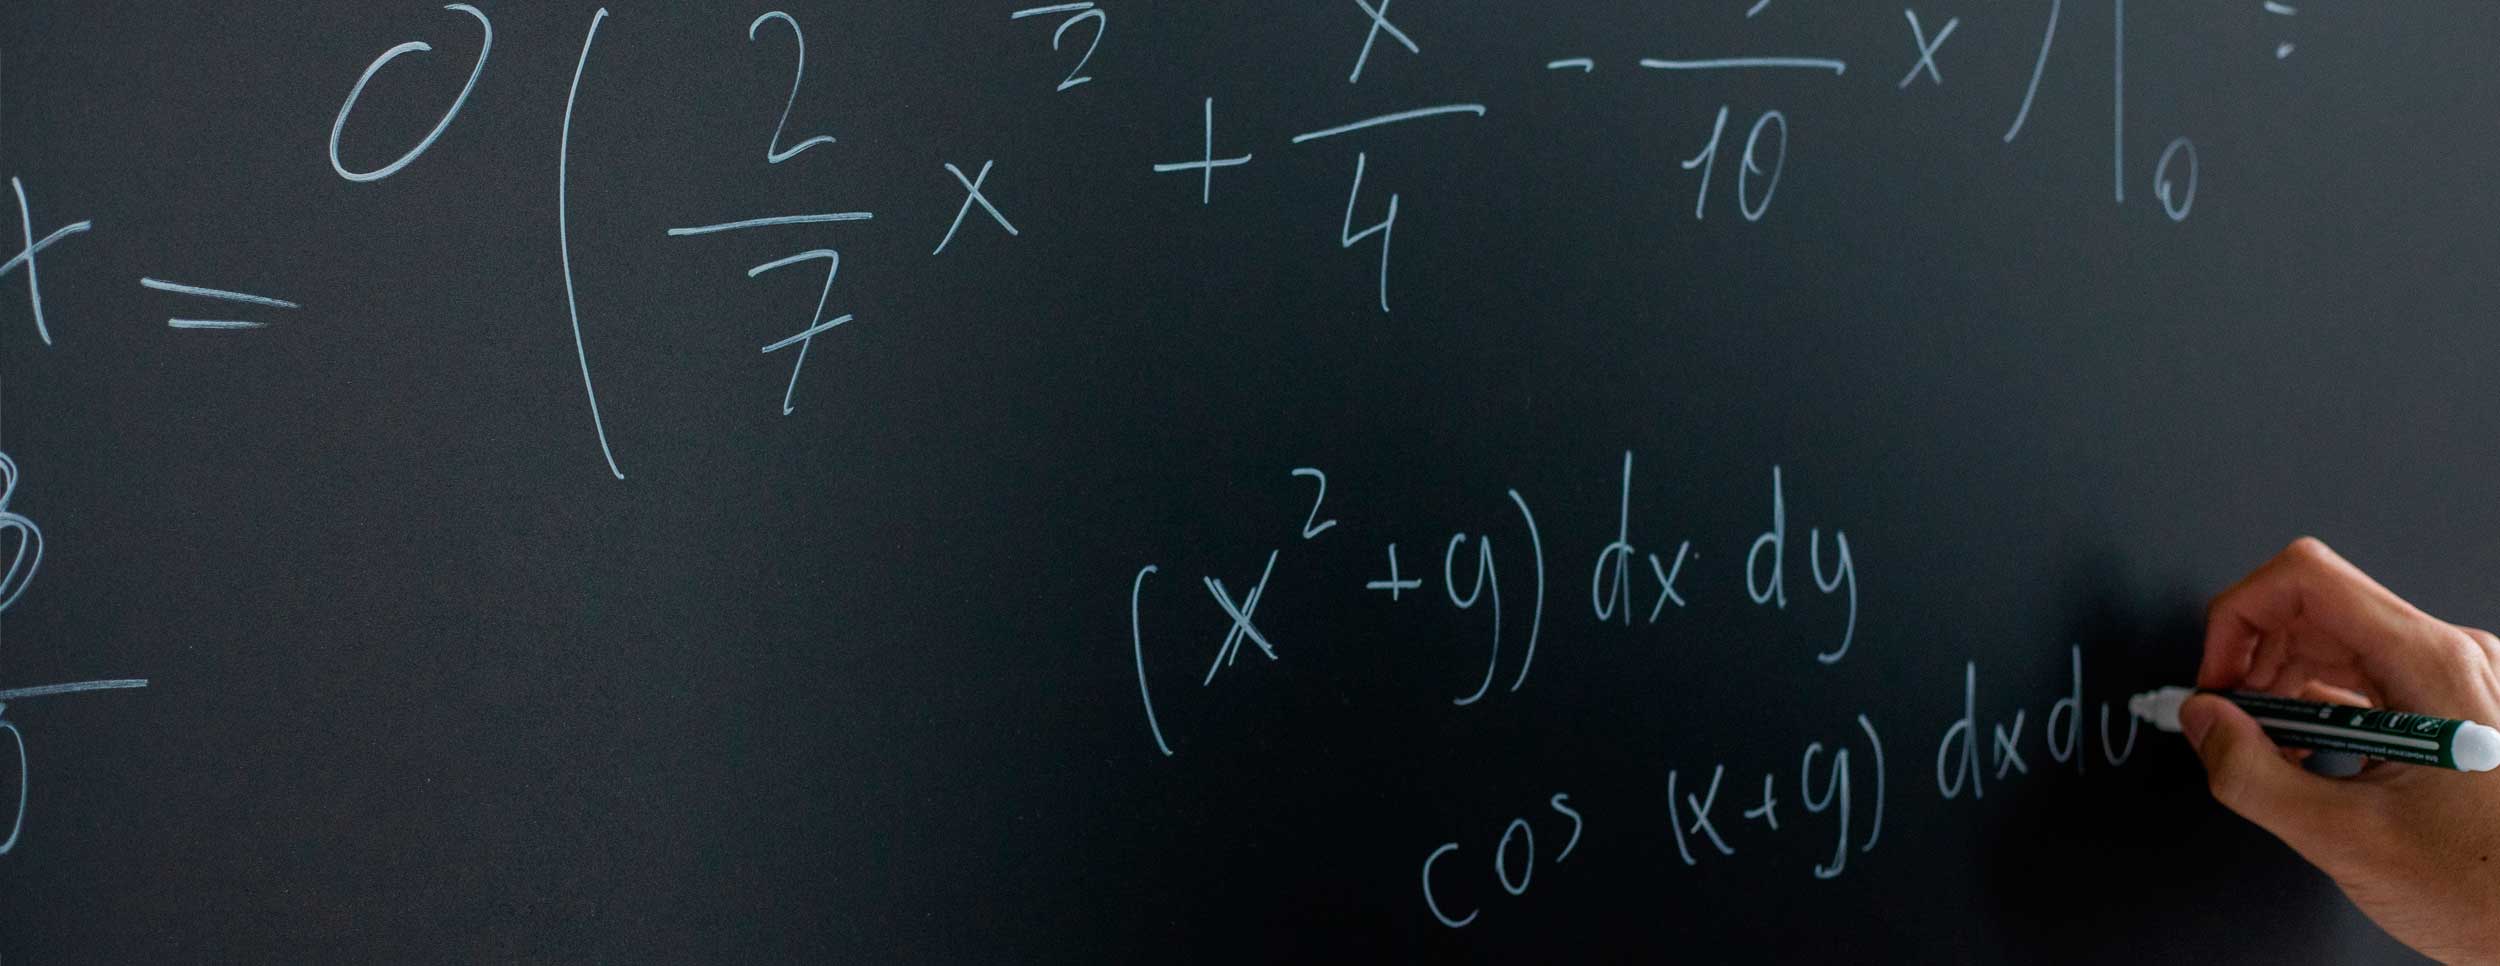 x = 0 ( 2/7 x^(-/2) + x/4 - /10 x ) |_0 =
(x² + y) dx dy
cos (x+y) dx dy